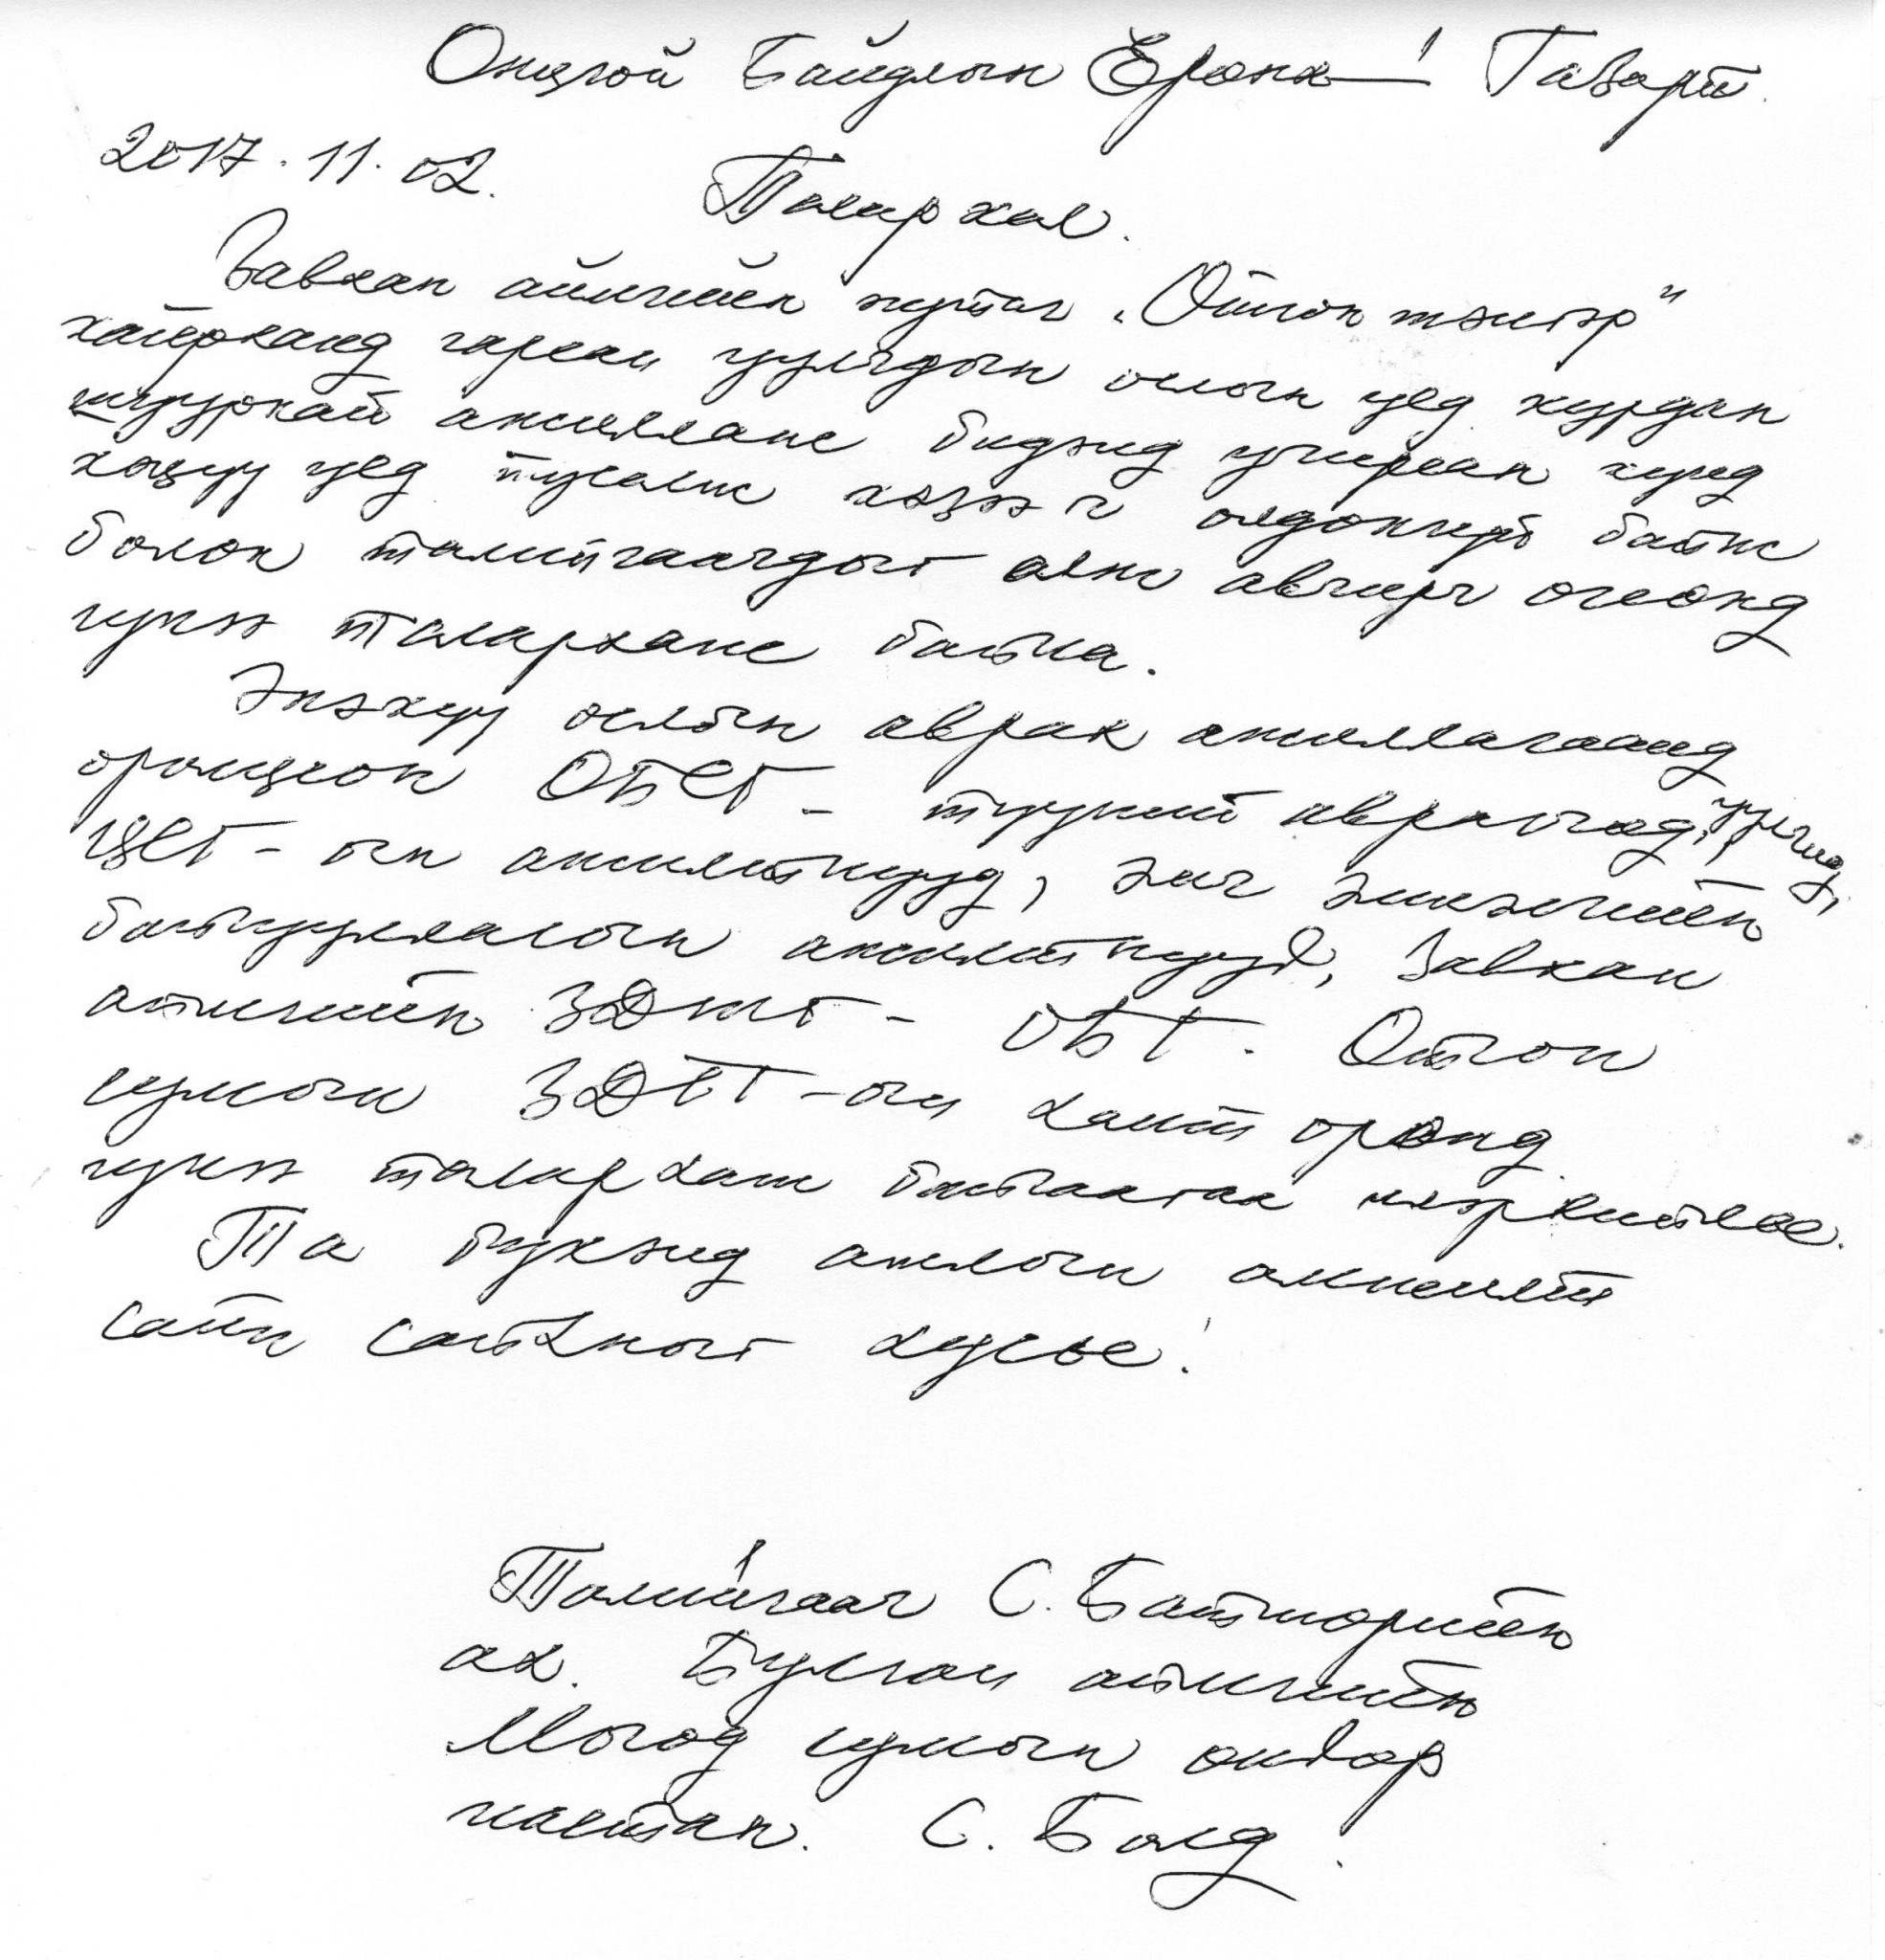 Онцгой Байдлын Ерөнхий Газарт.
2017.11.02.
Талархал.
Завхан аймгийн нутаг "Отгон тэнгэр"
хайрханд гарсан уулчдын ослын үед хурдан
шуурхай ажиллаж бидэнд учирсан хүнд
хэцүү үед тусалж хэзээ ч олдохгүй байж
болох тамирчдыг олж авчирч өгсөнд
гүнээ талархаж байна.
Энэхүү ослын аврах ажиллагаанд
оролцсон ОБЕГ- түүний аврагчид, уулчид,
ЦЕГ-ын ажилтнууд, энх эмнэлгийн
байгууллагын ажилтнууд, Завхан
аймгийн ЗДТГ- ОБГ. Отгон
сумын ЗДТГ-ын хамт олонд
гүнээ талархаж байгаагаа илэрхийлье.
Та бүхэнд ажлын амжилт
сайн сайхныг хүсье!
С. Батмөрийн
ах. Булган аймгийн
Могод сумын өндөр
настан. С. Болд.